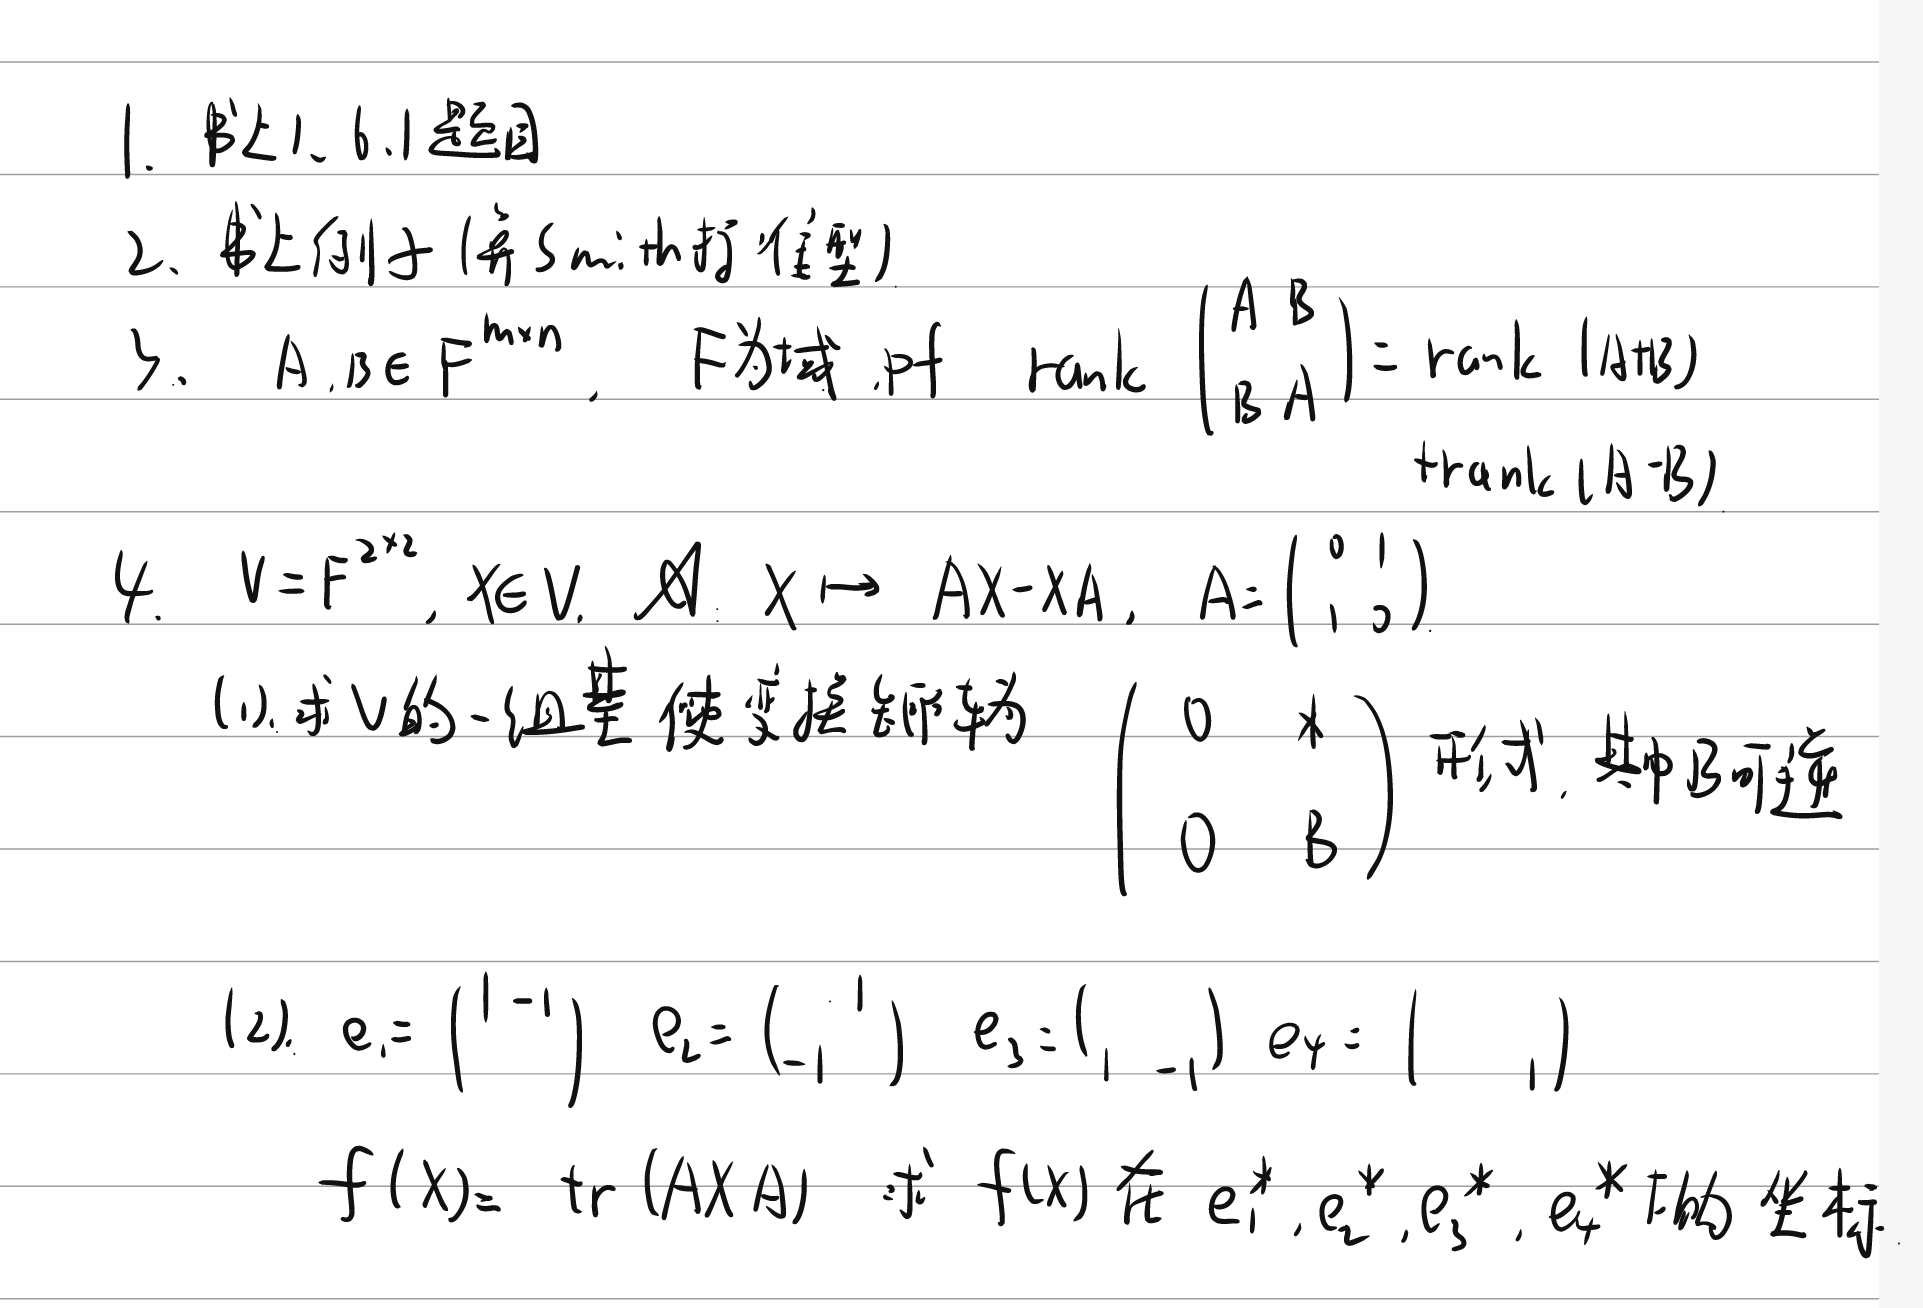 1. 书上1、6.1题目
2、书上例子(算Smith标准型)
3、 A,B∈F^{m×n}, F为域,pf rank (A B; B A) = rank (A+B)
+rank (A-B)
4. V=F^{2×2}, X∈V. 𝒜: X ↦ AX-XA, A=(0 1; 1 0).
(1).求V的一组基使变换矩阵为 (0 *; 0 B) 形式,其中B可逆
(2). e₁=(1 -1) e₂=(1; -1) e₃=(1 -1) e₄=(1)
f(X)= tr(AXA) 求 f(X)在 e₁*,e₂*,e₃*,e₄*下的坐标.